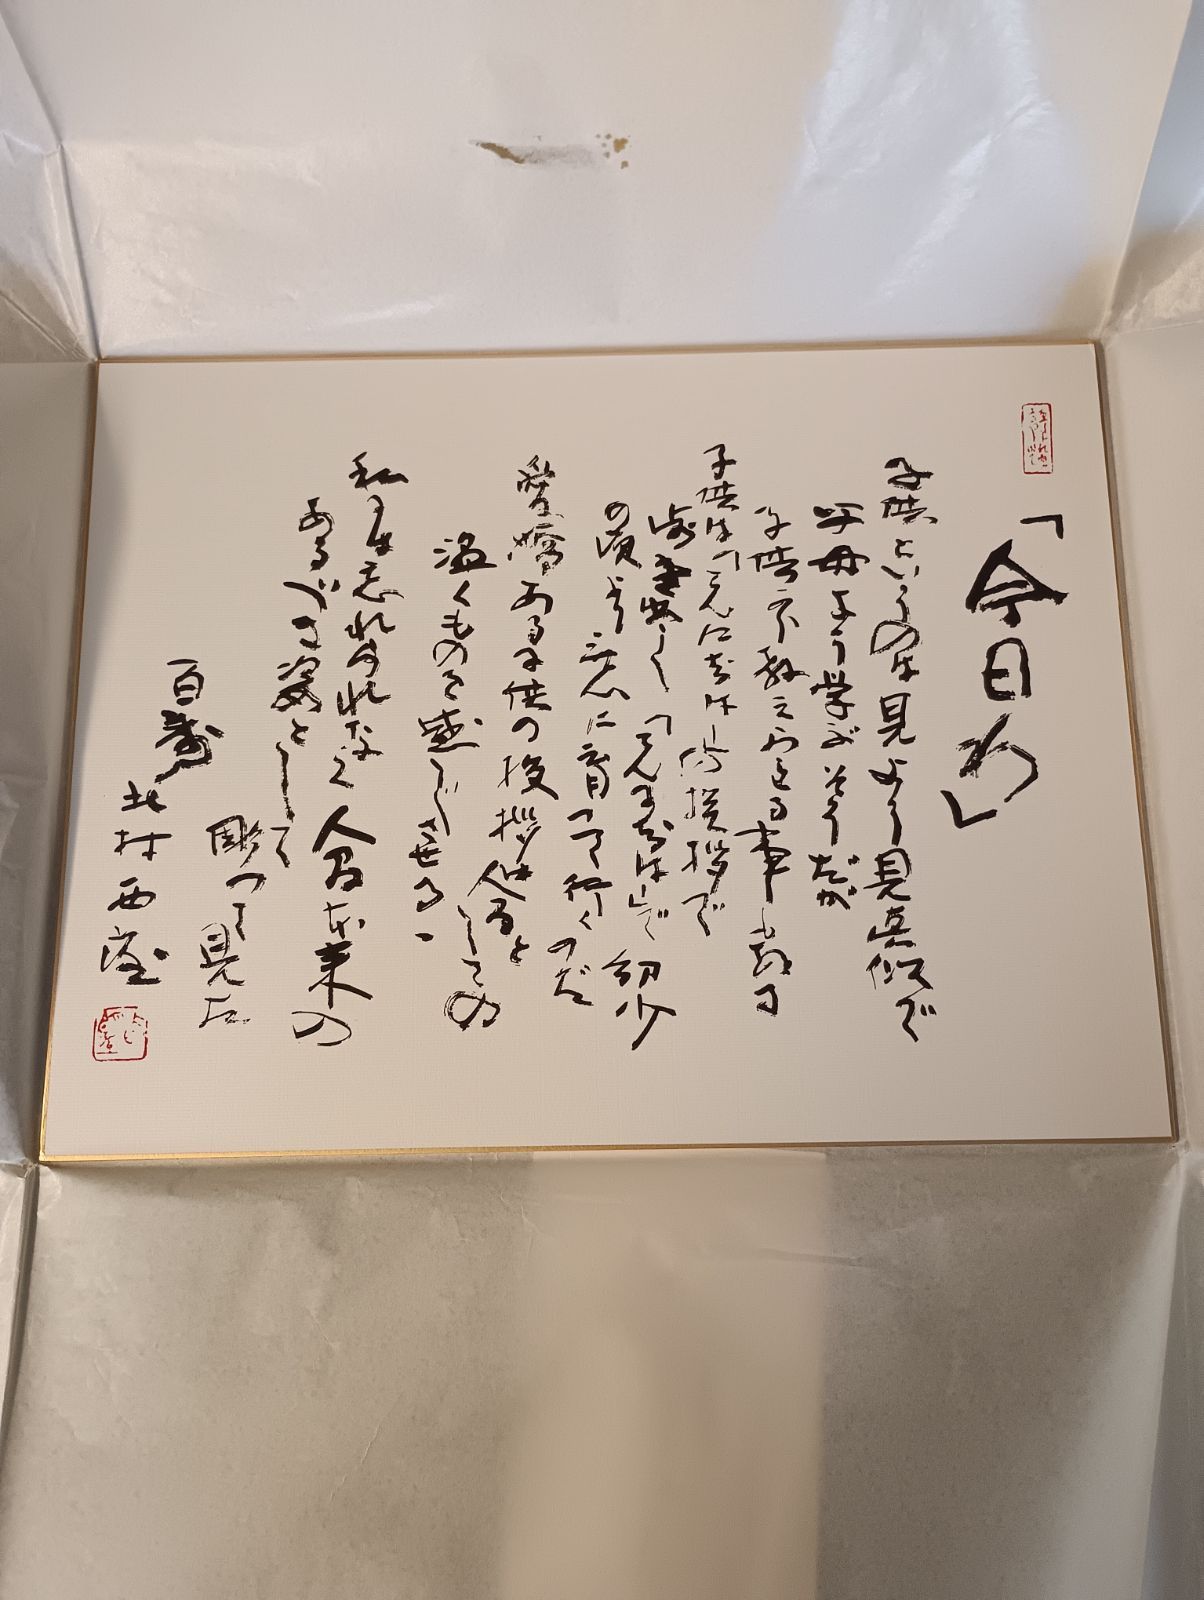 「今日わ」
子供というのは見よう見真似で
父母よう学ぶそうだが
子供に教えられる事もある
子供は「こんにちは」の挨拶で
「こんにちは」で幼少
の頃より に育って行くのだ
愛嬌ある子供の挨拶は人間としての
温くものを感じさせる、
私は忘れられなく人間本来の
あるべき姿として
彫って見た
百歳
北村西望